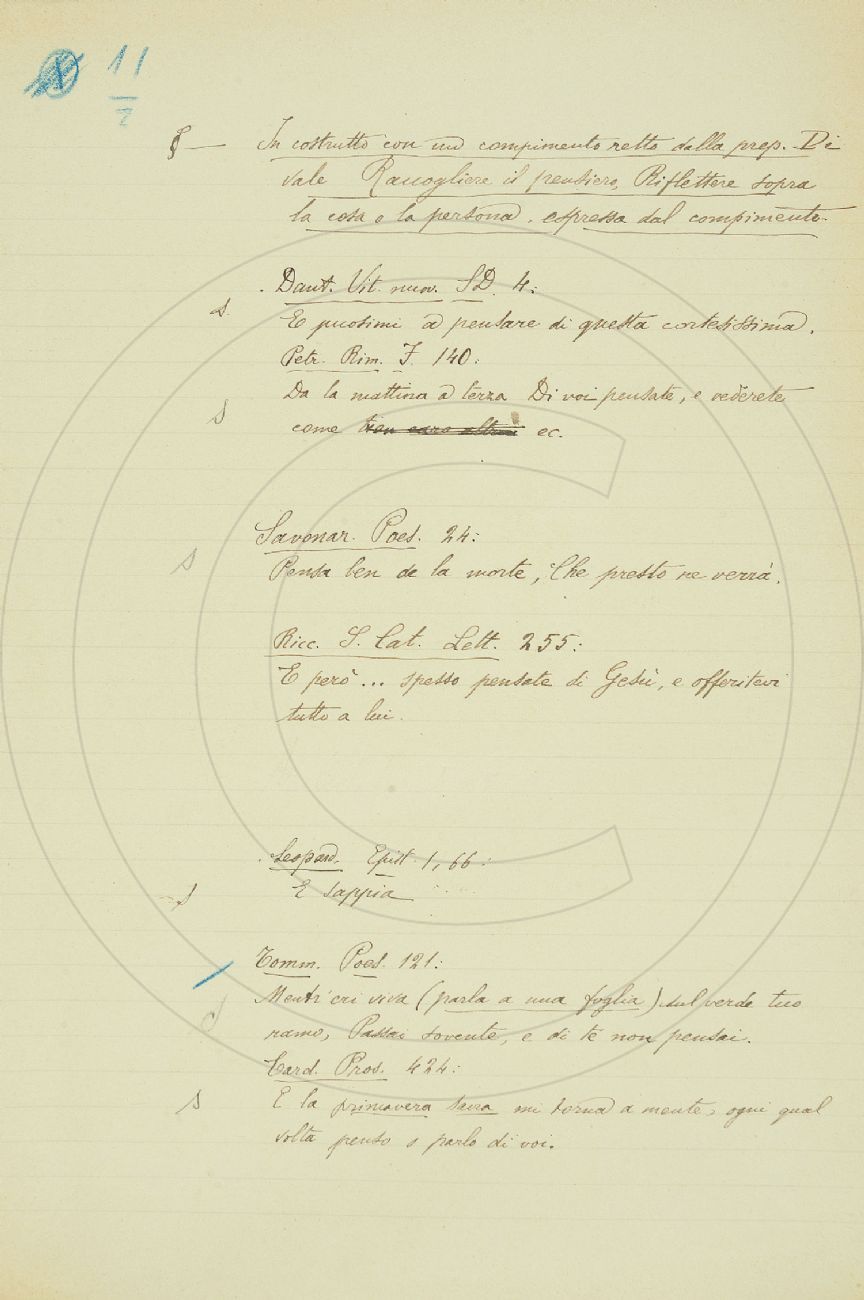 11
§ — In costrutto con un compimento retto dalla prep. Di
vale Raccogliere il pensiero, Riflettere sopra
la cosa o la persona espressa dal compimento.
Dant. Vit. nuov. SD. 4:
s. E puosimi a pensare di questa cortesissima.
Petr. Rim. F. 140:
Da la mattina a terza Di voi pensate, e vederete
s come ec.
Savonar. Poes. 24:
s Pensa ben de la morte, Che presto ne verrà.
Ricc. S. Cat. Lett. 255:
E però... spesso pensate di Gesù, e offeritevi
tutto a lui.
Leopard. Epist. 1, 66:
s E sappia
Tomm. Poes. 121:
Mentr'eri viva (parla a una foglia) sul verde tuo
ramo, Passai sovente, e di te non pensai.
Card. Pros. 424:
s E la primavera sacra mi torna a mente, ogni qual
volta penso o parlo di voi.